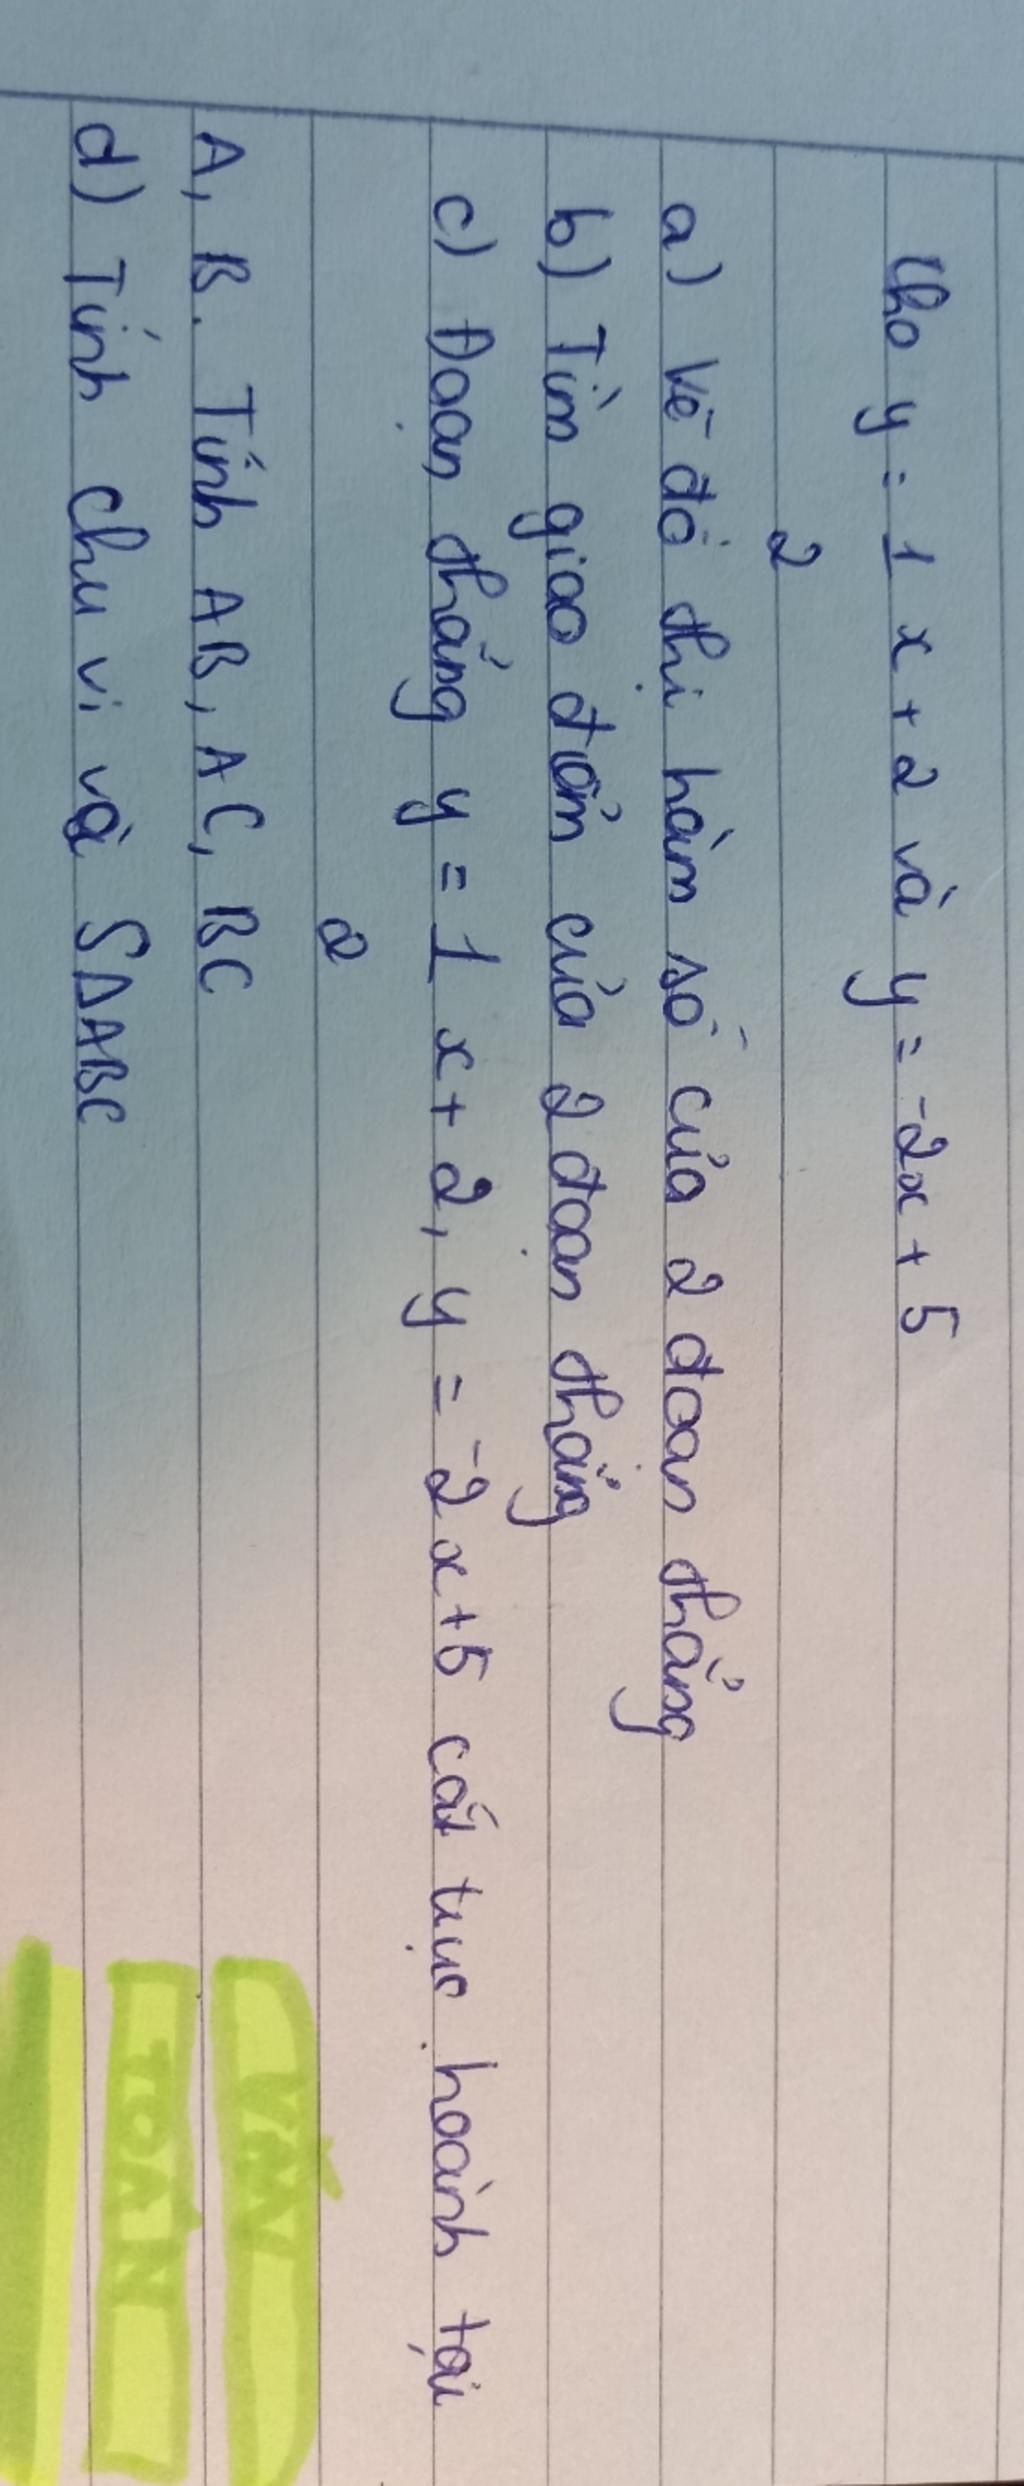 Cho y = 1 x + 2 và y = -2x + 5
2
a) Vẽ đồ thị hàm số của 2 đoạn thẳng
b) Tìm giao điểm của 2 đoạn thẳng
c) Đoạn thẳng y = 1 x + 2, y = -2x + 5 cắt trục hoành tại
2
A, B. Tính AB, AC, BC
d) Tính chu vi và SΔABC
VĂN
TOÁN